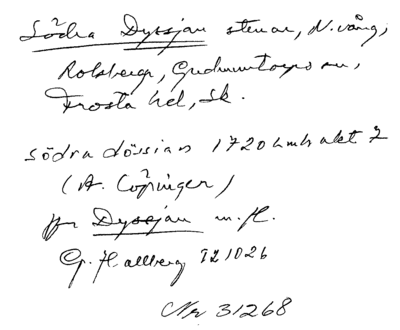 Södra Dyssjan stenar, N. vång,
Rolsberga, Gudmuntorps sn,
Frosta hd, Sk.
södra dössian 1720 Lmh akt 2
(A. Cöpinger)
jfr Dyssjan m. fl.
G. Hallberg 721026
Nr 31268